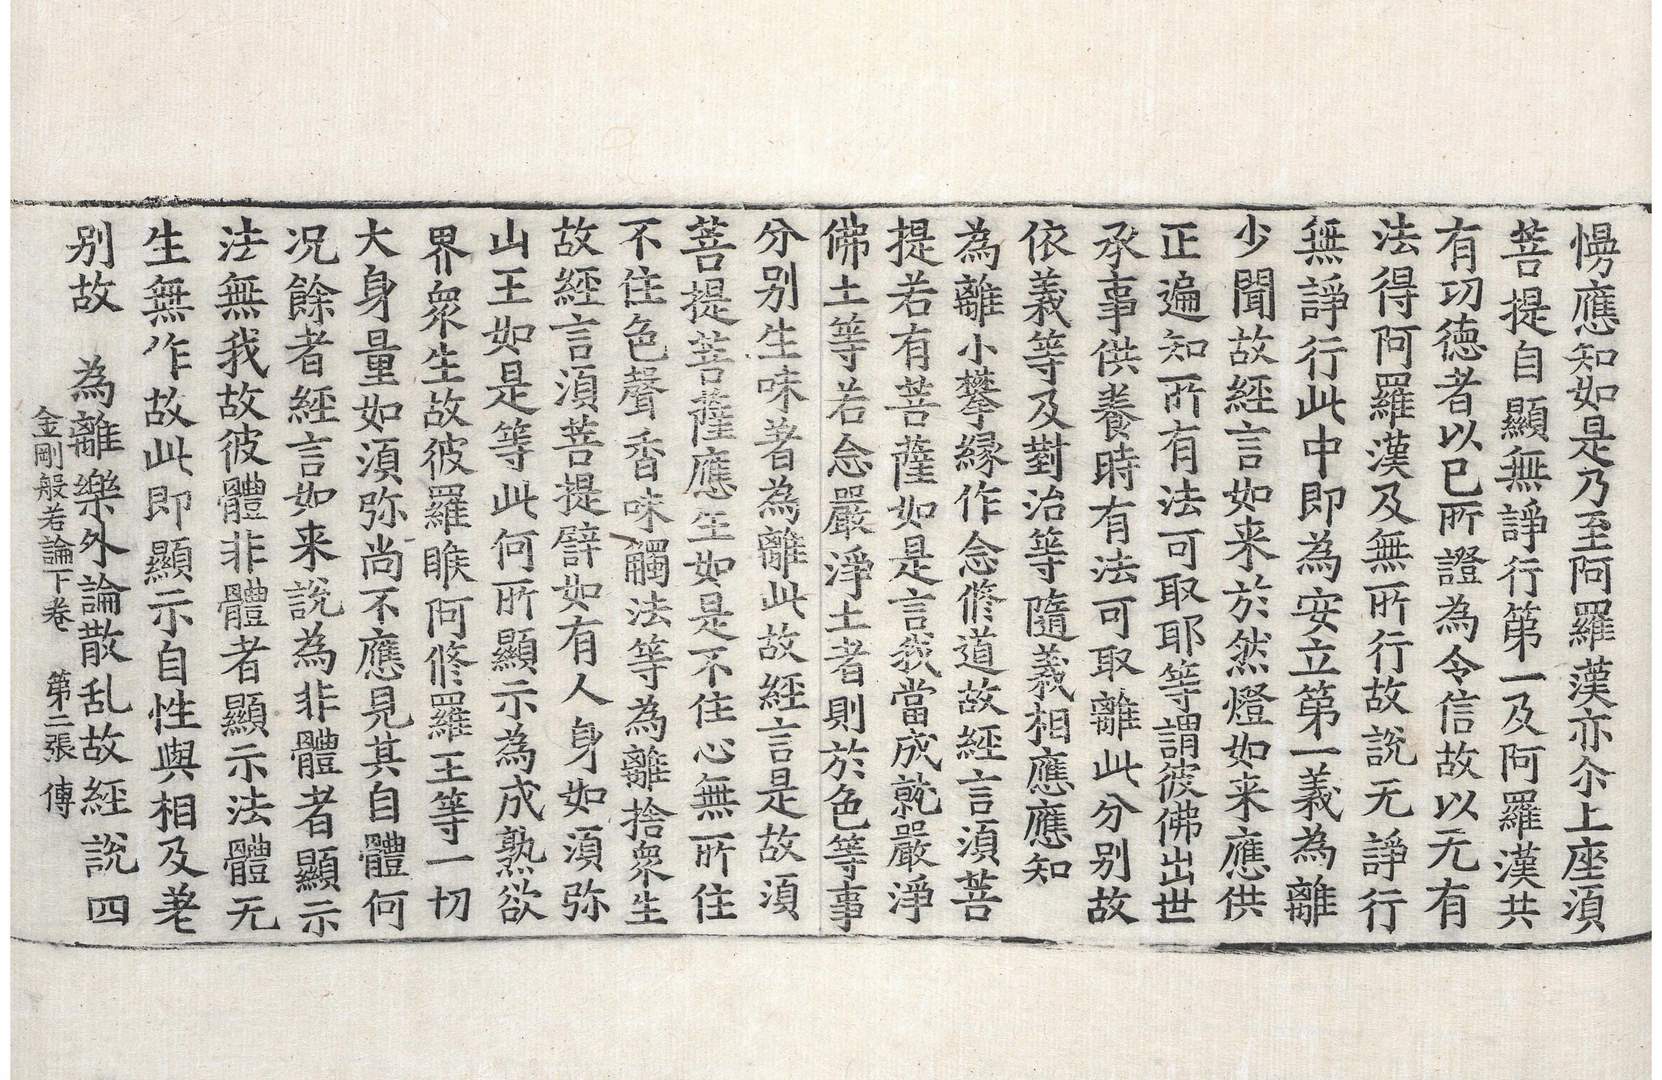 慢應知如是乃至阿羅漢亦尒上座湏
菩提自顯無諍行第一及阿羅漢共
有功德者以已所證為令信故以无有
法得阿羅漢及無所行故說无諍行
無諍行此中即為安立第一義為離
少聞故經言如来於然燈如来應供
正遍知所有法可取耶等謂彼佛出世
承事供養時有法可取離此分别故
依義等及對治等隨義相應應知
為離小攀緣作念修道故經言湏菩
提若有菩薩如是言我當成就嚴淨
佛土等若念嚴淨土者則於色等事
分别生味著為離此故經言是故湏
菩提菩薩應生如是不住心無所住
不住色聲香味觸法等為離捨衆生
故經言湏菩提譬如有人身如湏弥
山王如是等此何所顯示為成熟欲
界衆生故彼羅睺阿修羅王等一切
大身量如湏弥尚不應見其自體何
况餘者經言如来說為非體者顯示
法無我故彼體非體者顯示法體无
生無作故此即顯示自性與相及差
别故　為離樂外論散乱故經說四
金剛般若論下卷　第二張　傳